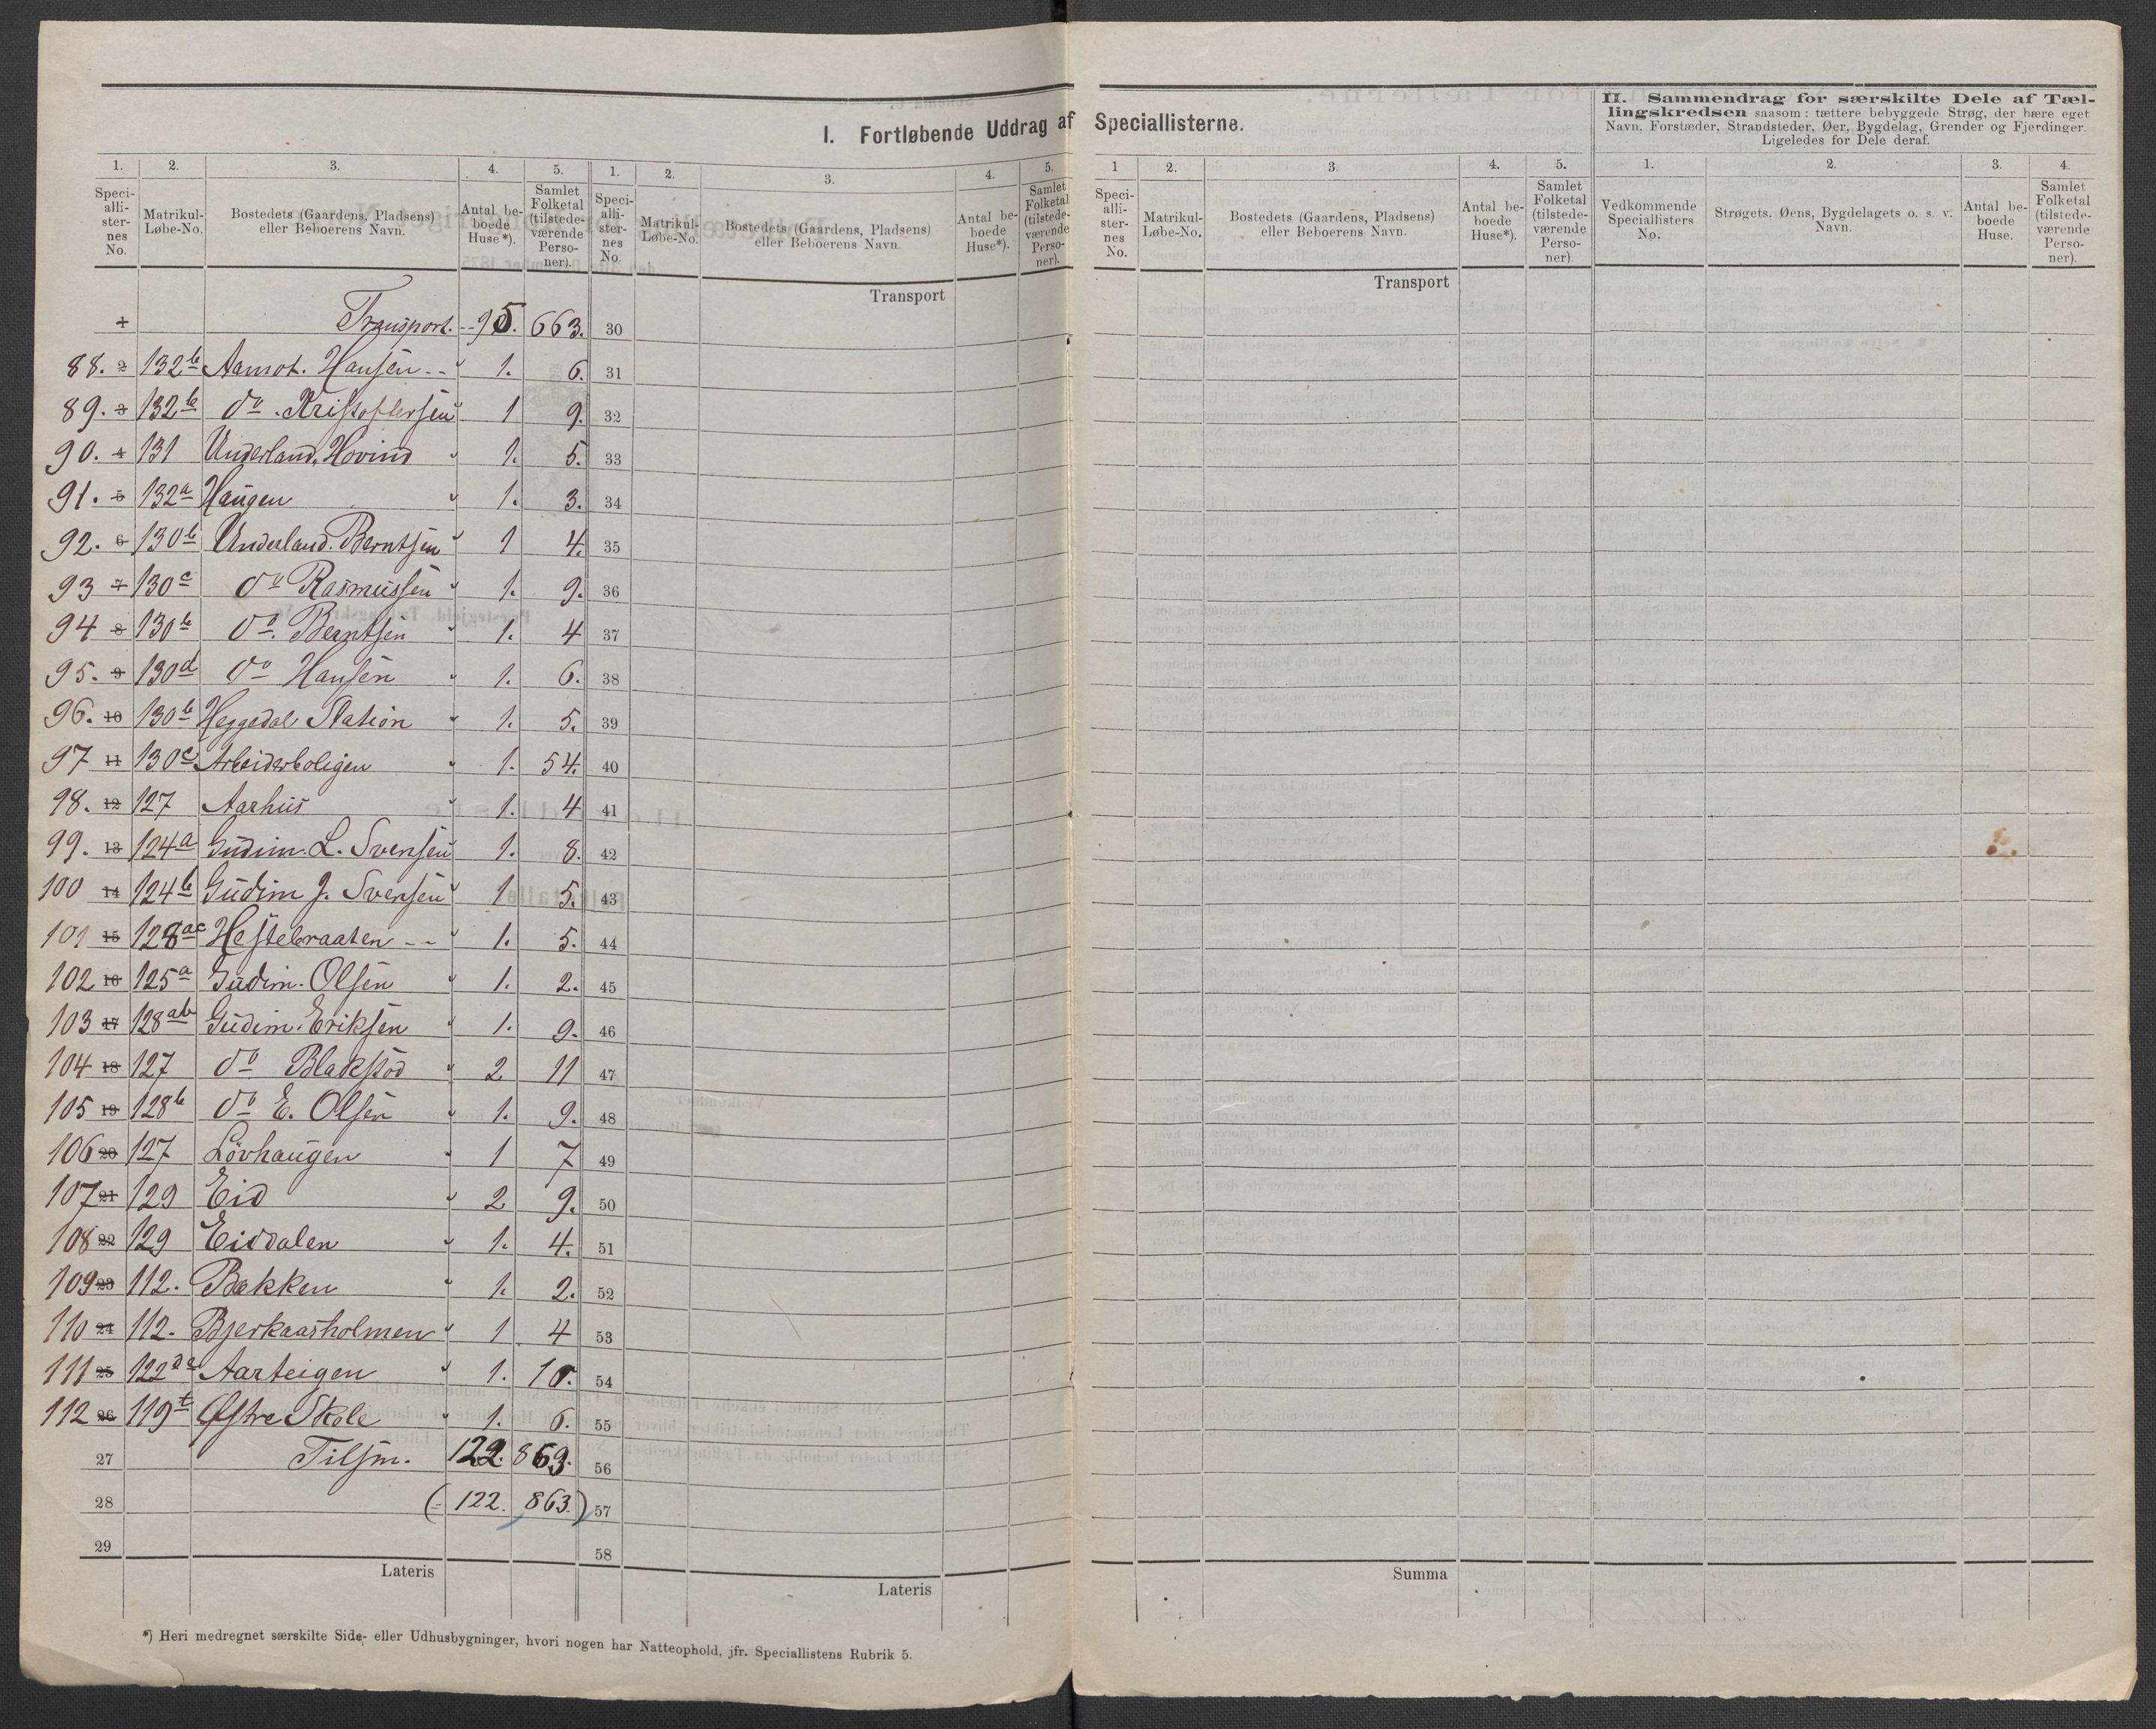 I. Fortløbende Uddrag af Speciallisterne.
II. Sammendrag for særskilte Dele af Tæl-
lingskredsen saasom: tættere bebyggede Strøg, der bære eget
Navn, Forstæder, Strandsteder, Øer, Bygdelag, Grender og Fjerdinger.
Ligeledes for Dele deraf.
1. 2. 3. 4. 5. 1. 2. 3. 4. 5. 1 2. 3. 4. 5. 1. 2. 3. 4.
Speci-alli-ster-nes No. Matrikul-Løbe-No. Bostedets (Gaardens, Pladsens) eller Beboerens Navn. Antal be-boede Huse*). Samlet Folketal (tilstede-værende Perso-ner).
Speci-alli-ster-nes No. Matrikul-Løbe-No. Bostedets (Gaardens, Pladsens) eller Beboerens Navn. Antal be-boede Huse*). Samlet Folketal (tilstede-værende Perso-ner).
Speci-alli-ster-nes No. Matrikul-Løbe-No. Bostedets (Gaardens, Pladsens) eller Beboerens Navn. Antal be-boede Huse*). Samlet Folketal (tilstede-værende Perso-ner).
Vedkommende Speciallisters No. Strøgets, Øens, Bygdelagets o. s. v. Navn. Antal be-boede Huse. Samlet Folketal (tilstede-værende Perso-ner).
Transport Transport
1 Transport. 95. 663. 30
88. 2 132b Aamot. Hansen 1. 6. 31
89. 3 132b do. Kristoffersen 1 9. 32
90. 4 131 Underland, Hovind 1. 5. 33
91. 5 132a Haugen 1. 3. 34
92. 6 130b Underland. Berntsen 1 4. 35
93 7 130c do Rasmussen 1. 9. 36
94 8 130b do. Berntsen 1. 4 37
95. 9 130d do Hansen 1. 6. 38
96. 10 130b Heggedal Station 1. 5. 39
97 11 130c Arbeiderboligen 1. 54. 40
98. 12 127 Aarhus 1. 4 41
99. 13 124a Gudim. L. Svensen 1. 8. 42
100 14 124b Gudim J. Svensen 1 5. 43
101 15 128ac Hestebraaten 1. 5. 44
102 16 125a Gudim. Olsen 1. 2. 45
103 17 128ab Gudim. Eriksen 1. 9. 46
104 18 127 do Blakstod 2 11 47
105 19 128b do E. Olsen 1. 9. 48
106 20 127 Lövhaugen 1 7 49
107 21 129 Eid 2 9. 50
108 22 129 Eiddalen 1. 4. 51
109 23 112. Bækken 1. 2. 52
110 24 112. Bjerkaasholmen 1 4 53
111 25 122de Aarteigen 1. 10. 54
112 26 119t Østre Skole 1. 6. 55
27 Tilsm. 122. 863. 56
28 (= 122. 863.) 57
29 58
Lateris Lateris Summa
*) Heri medregnet særskilte Side- eller Udhusbygninger, hvori nogen har Natteophold, jfr. Speciallistens Rubrik 5.